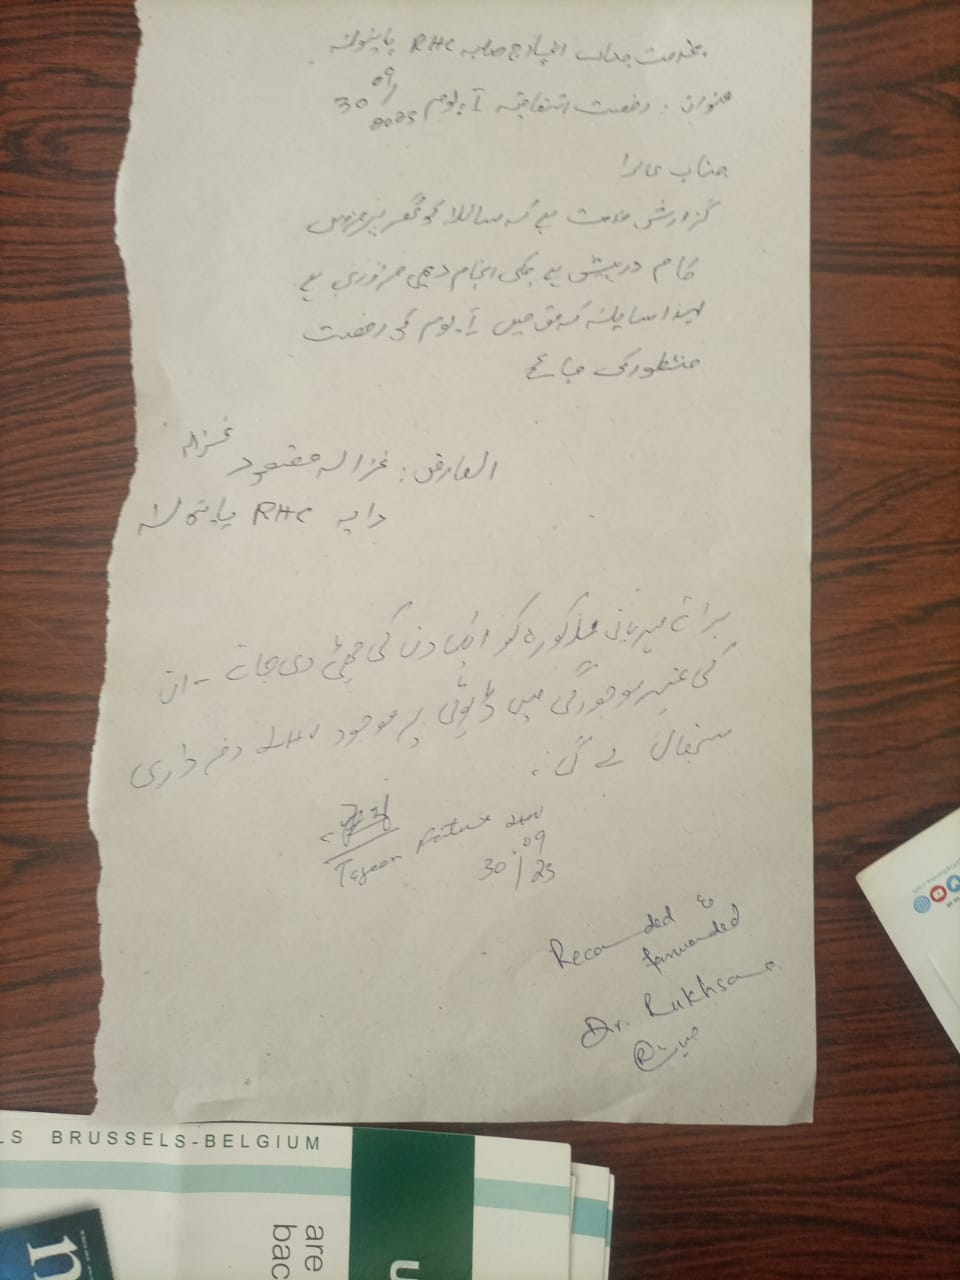 بخدمت جناب انچارج صاحبہ RHC
عنوان: رخصت اتفاقیہ 1 یوم 30/09/2023
جناب عالیہ
گزارش خدمت ہے کہ سائلہ کو گھر پر ضروری
کام درپیش ہے جسکی انجام دہی ضروری ہے
لہذا سائلہ کے حق میں 1 یوم کی رخصت
منظور کی جائے
غزالہ
العارض: غزالہ مقصود
دایہ RHC
برائے مہربانی مذکورہ کو ایک دن کی چھٹی دی جائے - ان
کی غیر موجودگی میں ڈیوٹی پر موجود LHV ذمہ داری
سنبھال لے گی۔
Fatima LHV
30/09/23
Recomended &
forwarded
Dr. Rukhsana
LS BRUSSELS-BELGIUM
are
bac
u
n